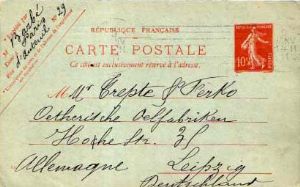 RÉPUBLIQUE FRANÇAISE
CARTE POSTALE
Ce côté est exclusivement réservé à l'adresse.
10c
29
Paris
Mrs Trepte & Ferko
Oetherische Oelfabriken
Hoche Str. 35
Allemagne Leipzig
Deutschland